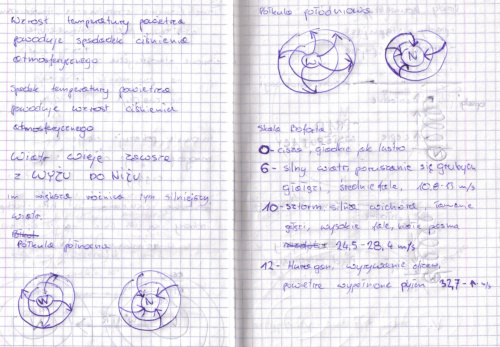 Wzrost temperatury powietrza
powoduje spadek ciśnienia
atmosferycznego
Spadek temperatury powietrza
powoduje wzrost ciśnienia
atmosferycznego
Wiatr wieje zawsze
z WYŻU DO NIŻU
im większa różnica tym silniejszy
wiatr.
Półkula północna
W
N
Półkula południowa
N
Skala Boforta
0 - cisza, gładkie jak lustro
6 - silny wiatr, poruszanie się grubych
gałęzi, średnie fale, 10,8-13 m/s
10 - sztorm silna wichura, łamanie
wysokie fale, białe pasma
24,5-28,4 m/s
12 - Huragan, wyrywanie drzew,
powietrze wypełnione pyłem 32,7-